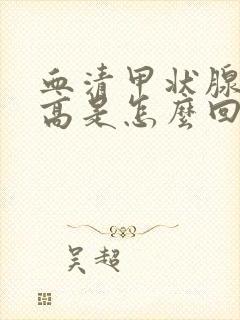 血清甲状腺
高是怎麼回
吴超